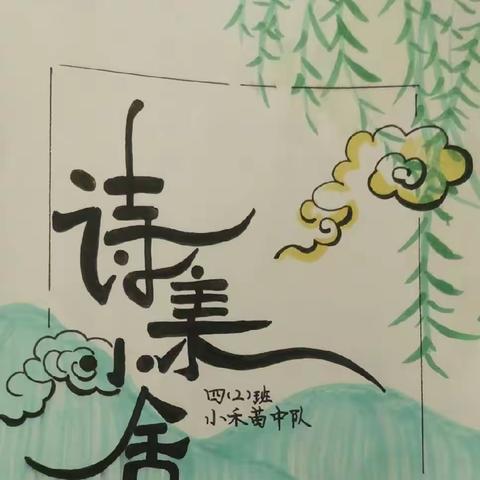 诗集
小舍
四(2)班
小禾苗中队